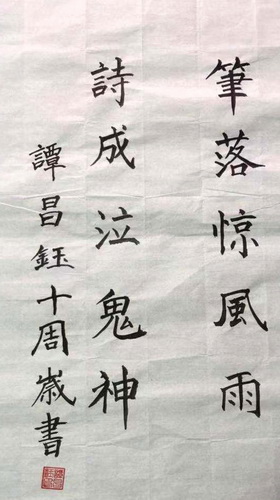 筆落惊風雨
詩成泣鬼神
譚昌鈺十周嵗書